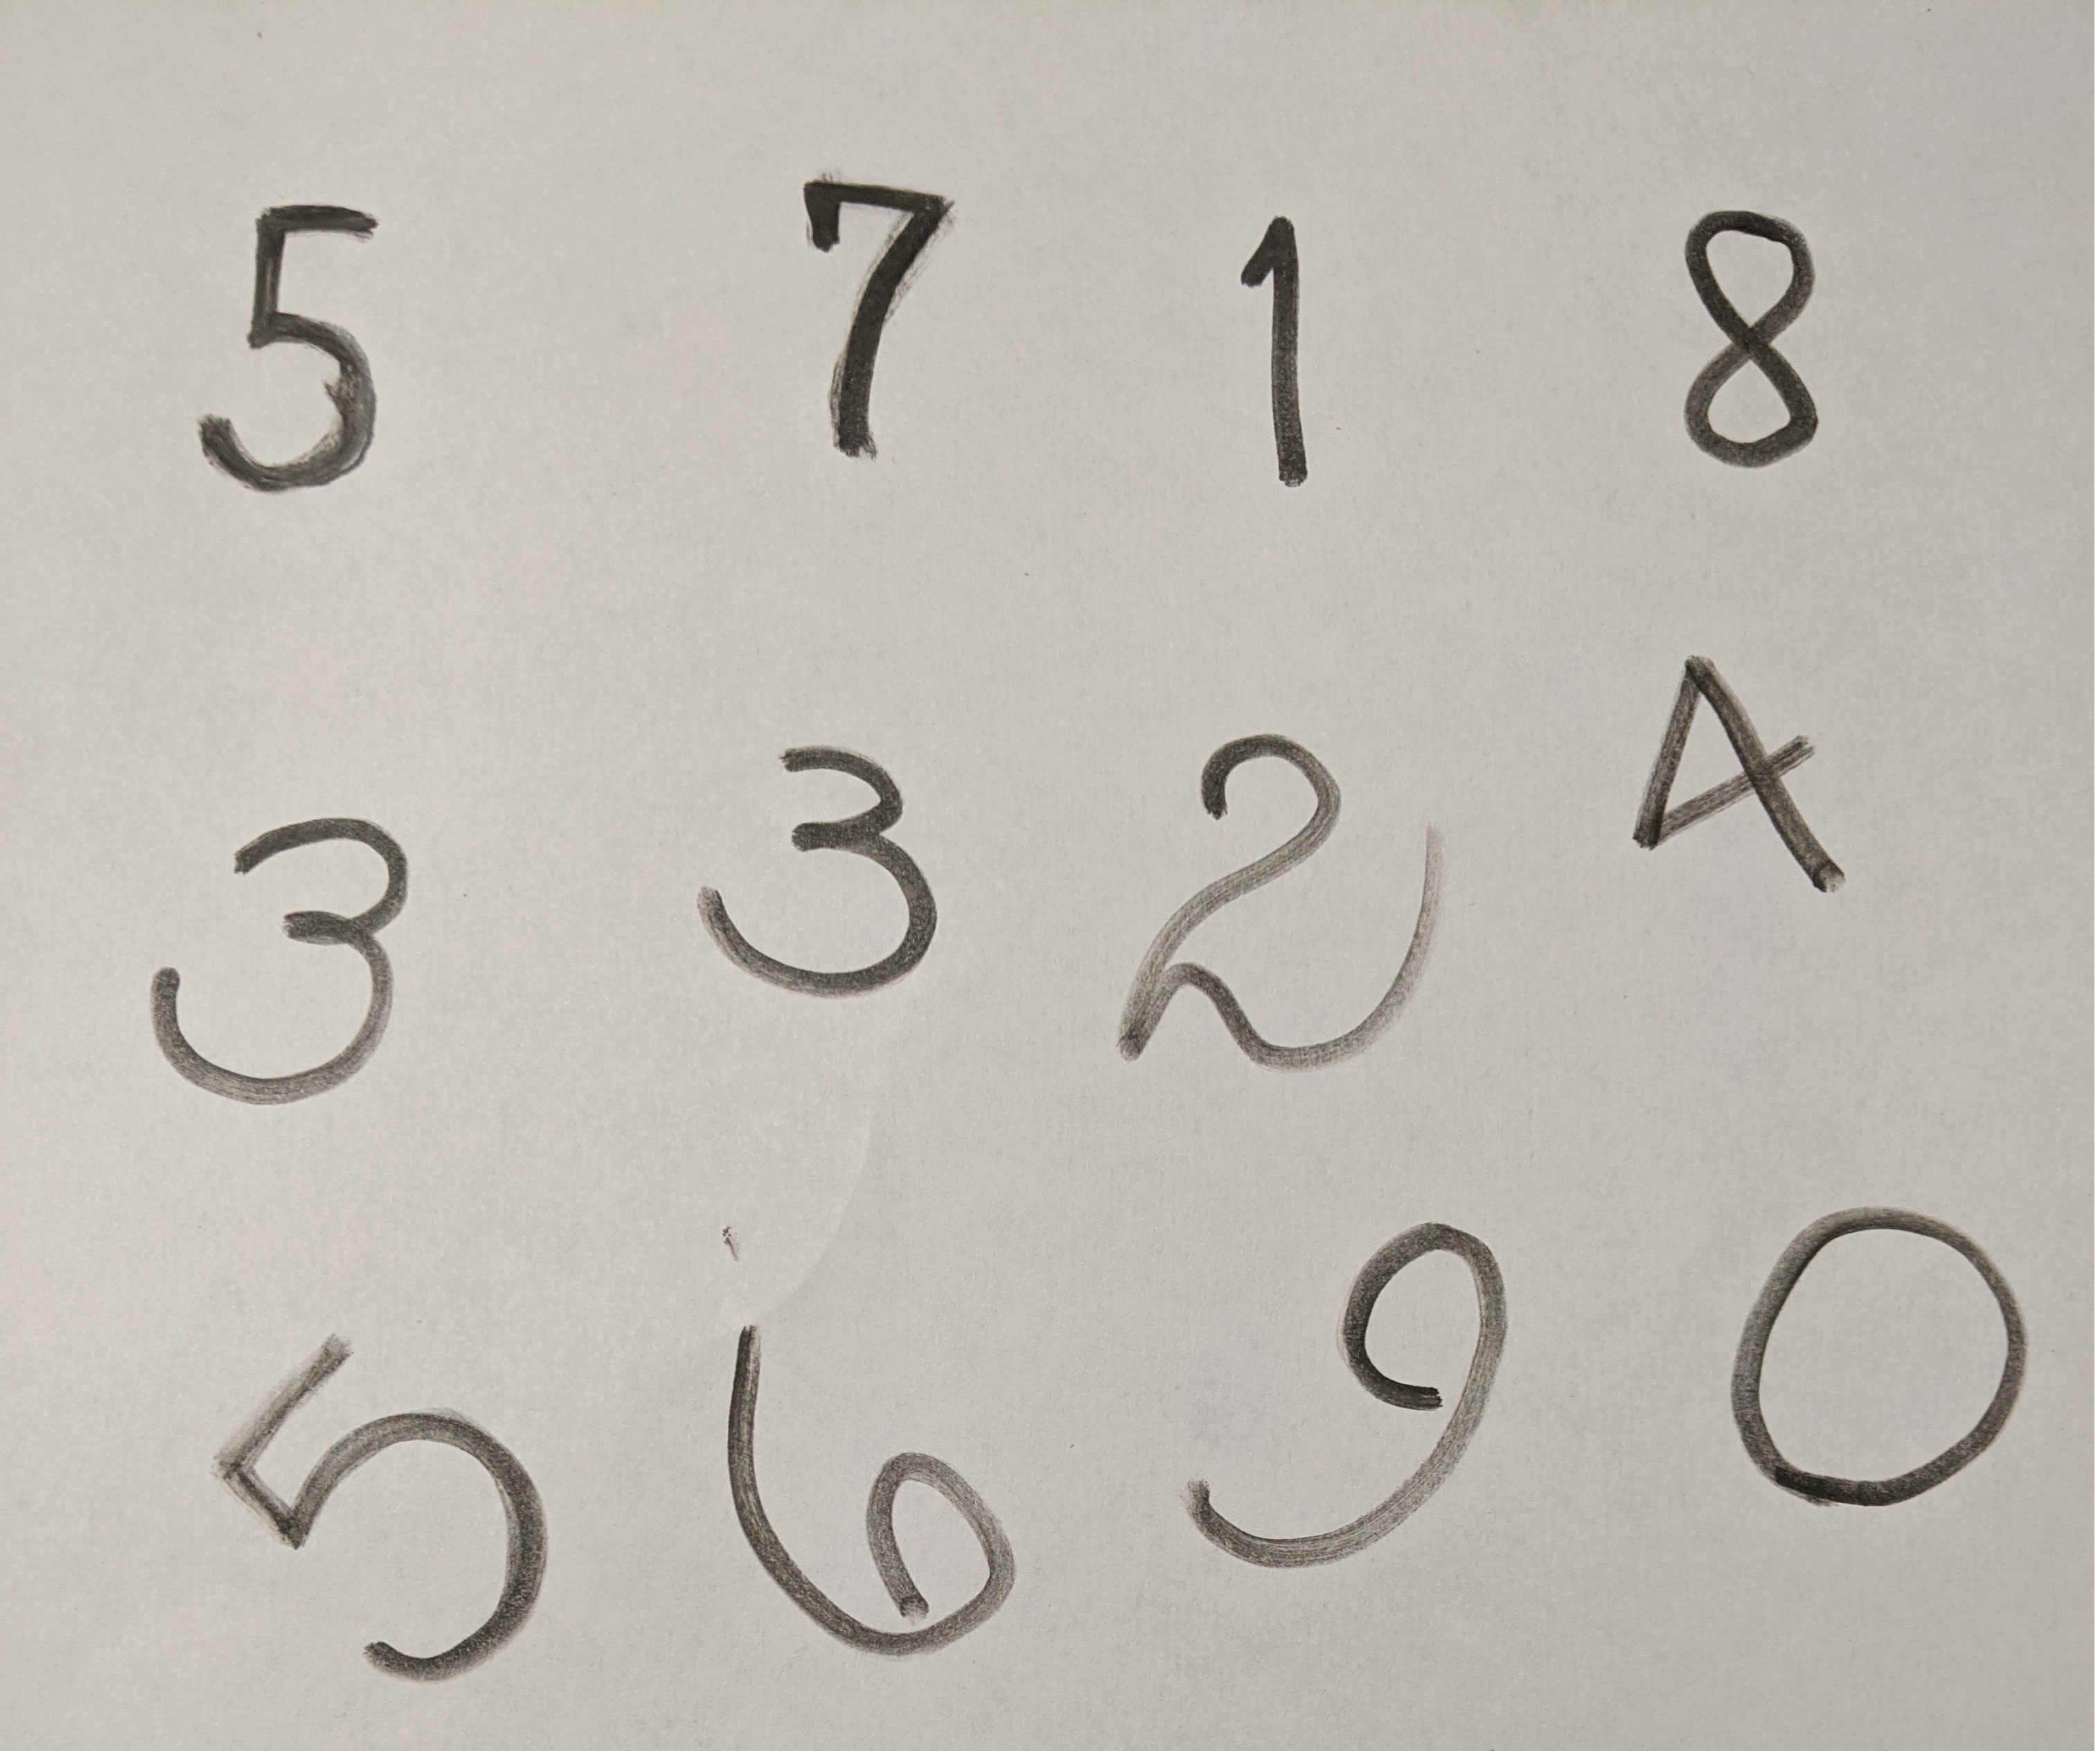 5 7 1 8
3 3 2 4
5 6 9 0